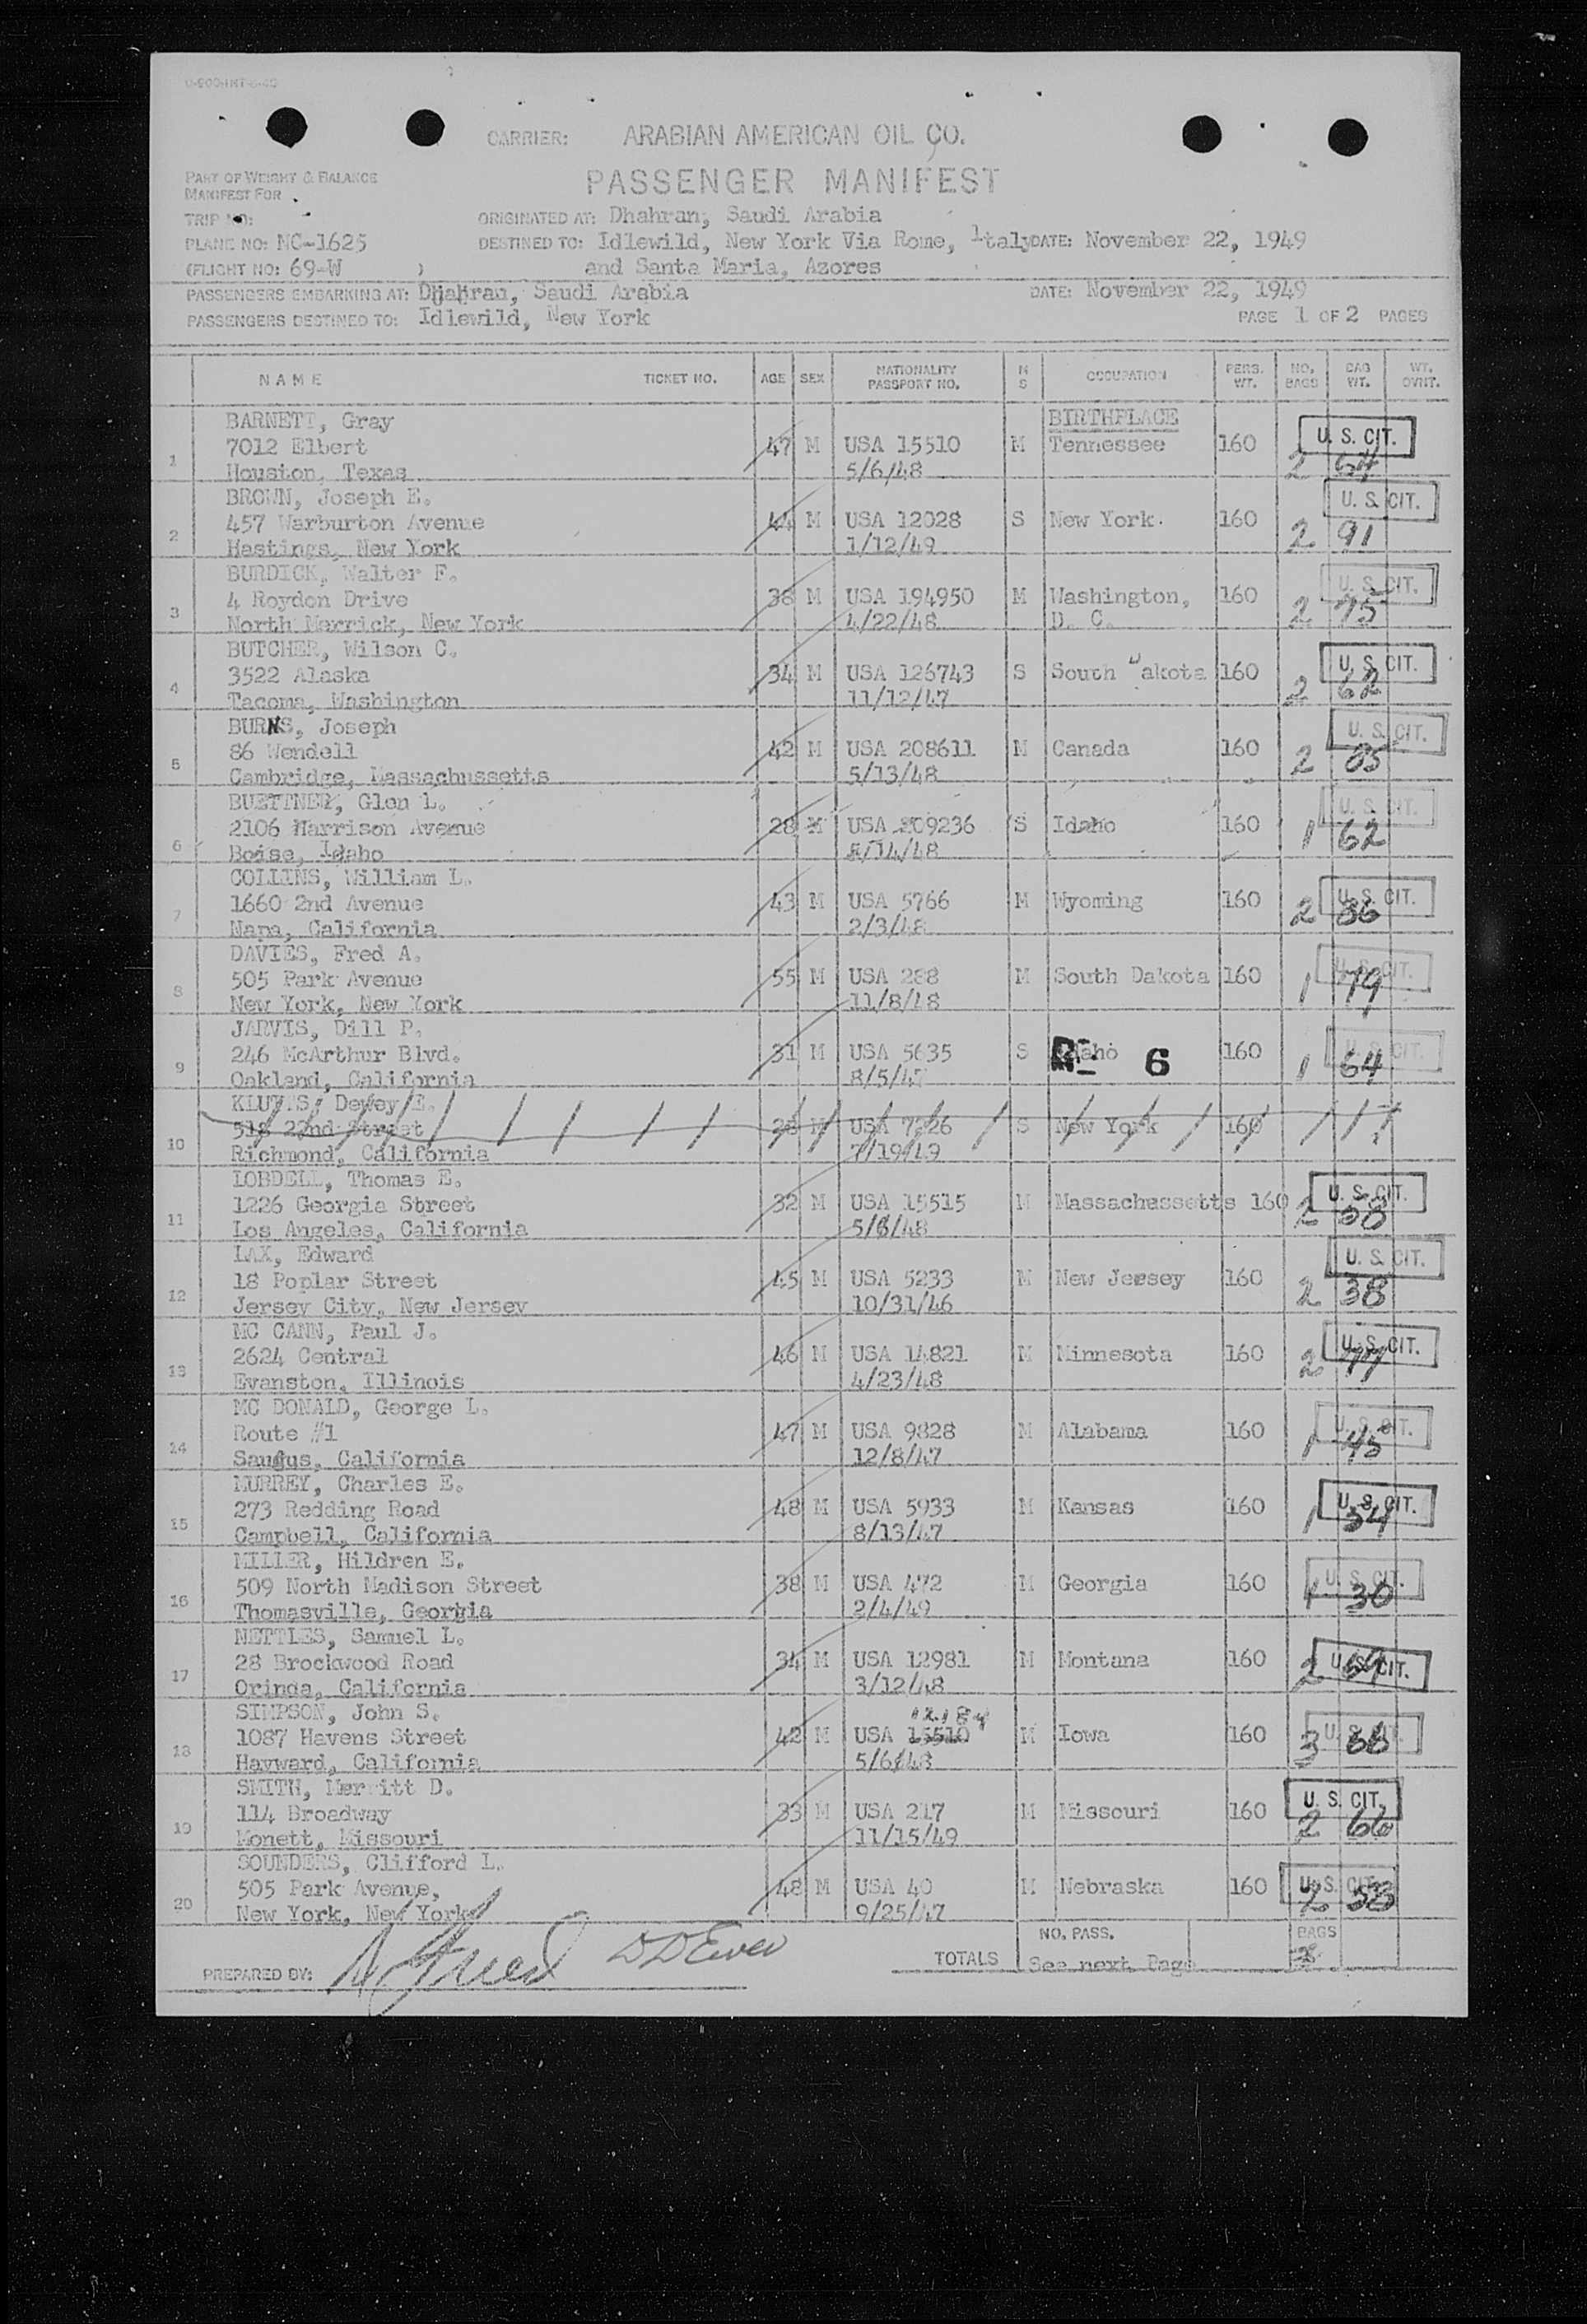 CARRIER: ARABIAN AMERICAN OIL CO.
PART OF WEIGHT & BALANCE
MANIFEST FOR
PASSENGER MANIFEST
TRIP NO:
ORIGINATED AT: Dhahran, Saudi Arabia
PLANE NO: NC-1625
DESTINED TO: Idlewild, New York Via Rome, Italy DATE: November 22, 1949
(FLIGHT NO: 69-W )
and Santa Maria, Azores
PASSENGERS EMBARKING AT: Dhahran, Saudi Arabia DATE: November 22, 1949
PASSENGERS DESTINED TO: Idlewild, New York PAGE 1 OF 2 PAGES
NAME TICKET NO. AGE SEX NATIONALITY PASSPORT NO. M S OCCUPATION PERS. WT. NO. BAGS BAG WT. WT. OVHT.
BARNETT, Gray BIRTHPLACE
7012 Elbert 47 M USA 15510 M Tennessee 160 U. S. CIT.
1 Houston, Texas 5/6/48 2 64
BROWN, Joseph E. U. S. CIT.
457 Warburton Avenue 44 M USA 12028 S New York. 160
2 Hastings, New York 1/12/49 2 91
BURDICK, Walter F. U. S. CIT.
4 Roydon Drive 38 M USA 194950 M Washington, 160
3 North Merrick, New York 4/22/48 D. C. 2 75
BUTCHER, Wilson C. U. S. CIT.
3522 Alaska 34 M USA 126743 S South Dakota 160
4 Tacoma, Washington 11/12/47 2 62
BURNS, Joseph U. S. CIT.
86 Wendell 42 M USA 208611 M Canada 160
5 Cambridge, Massachussetts 5/13/48 2 85
BUETTNER, Glen L. U. S. CIT.
2106 Harrison Avenue 28 M USA 209236 S Idaho 160
6 Boise, Idaho 5/14/48 1 62
COLLINS, William L.
1660 2nd Avenue 43 M USA 5766 M Wyoming 160 U. S. CIT.
7 Napa, California 2/3/48 2 86
DAVIES, Fred A. U. S. CIT.
505 Park Avenue 55 M USA 288 M South Dakota 160
8 New York, New York 11/8/48 1 79
JARVIS, Dill P.
246 McArthur Blvd. 31 M USA 5635 S Idaho 6 160 U. S. CIT.
9 Oakland, California 8/5/47 1 64
Dewey E.
518 22nd Street 28 M USA 7226 S New York 160
10 Richmond, California 7/19/49
LOBDELL, Thomas E. U. S. CIT.
1226 Georgia Street 32 M USA 15515 M Massachussetts 160
11 Los Angeles, California 5/6/48 2
LAX, Edward U. S. CIT.
18 Poplar Street 45 M USA 5233 M New Jersey 160
12 Jersey City, New Jersey 10/31/46 2 38
MC CANN, Paul J. U. S. CIT.
2624 Central 46 M USA 14821 M Minnesota 160
13 Evanston, Illinois 4/23/48 2 77
MC DONALD, George L. U. S. CIT.
Route #1 47 M USA 9828 M Alabama 160
14 Saugus, California 12/8/47 1 45
MURREY, Charles E. U. S. CIT.
273 Redding Road 48 M USA 5933 M Kansas 160
15 Campbell, California 8/13/47 1 34
MILLER, Hildren E. U. S. CIT.
509 North Madison Street 38 M USA 472 M Georgia 160
16 Thomasville, Georgia 2/4/49 1 30
NETTLES, Samuel L.
28 Brockwood Road 34 M USA 12981 M Montana 160 U. S. CIT.
17 Orinda, California 3/12/48 2 59
SIMPSON, John S. 12184
1087 Havens Street 42 M USA 15510 M Iowa 160 U. S. CIT.
18 Hayward, California 5/6/48 3 68
SMITH, Merritt D. U. S. CIT.
114 Broadway 33 M USA 217 M Missouri 160
19 Monett, Missouri 11/15/49 2 66
SOUNDERS, Clifford L.
505 Park Avenue, 48 M USA 40 M Nebraska 160 U. S. CIT.
20 New York, New York 9/25/47 2 53
NO. PASS. BAGS
PREPARED BY: DDEwer TOTALS See next Page